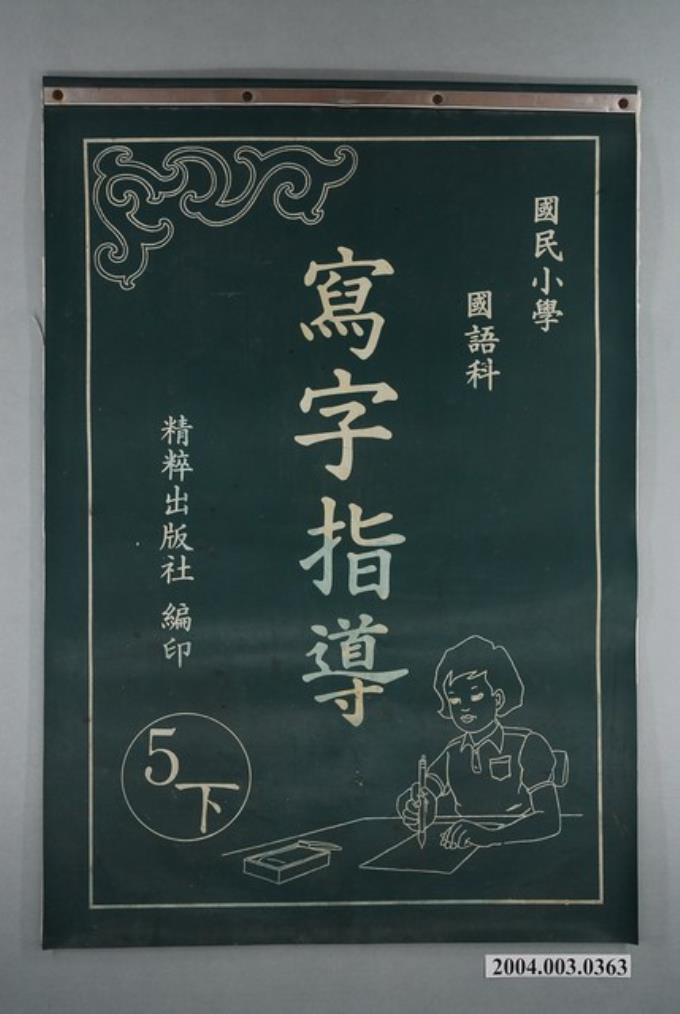 國民小學
國語科
寫字指導
精粹出版社 編印
5下
2004.003.0363